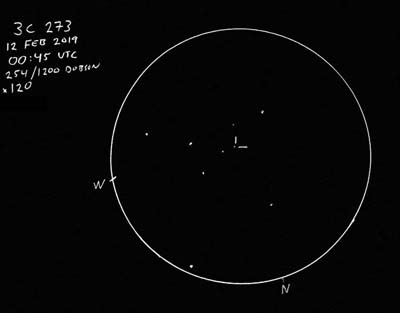 3C 273
12 FEB 2019
00:45 UTC
254/1200 DOBSON
×120
W
N